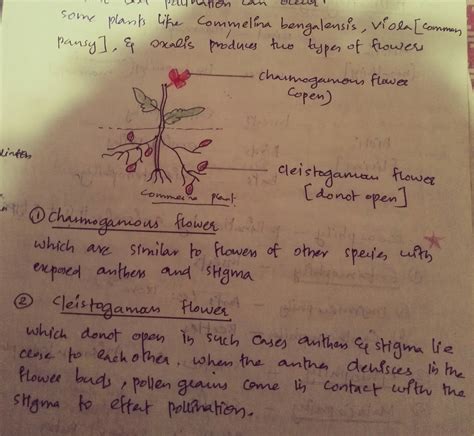 pollination can occur
some plants like Commelina bengalensis, Viola [common
pansy], & oxalis produces two types of flowers
chasmogamous flower
(open)
cleistogaman flower
[donot open]
Commelina plant.
① Chasmogamous flower
which are similar to flowers of other species with
exposed anthers and stigma
② Cleistogaman flower
which donot open in such cases anthers & stigma lie
close to each other. when the anther dehisces in the
flower buds, pollen grains come in contact with the
stigma to effect pollination.